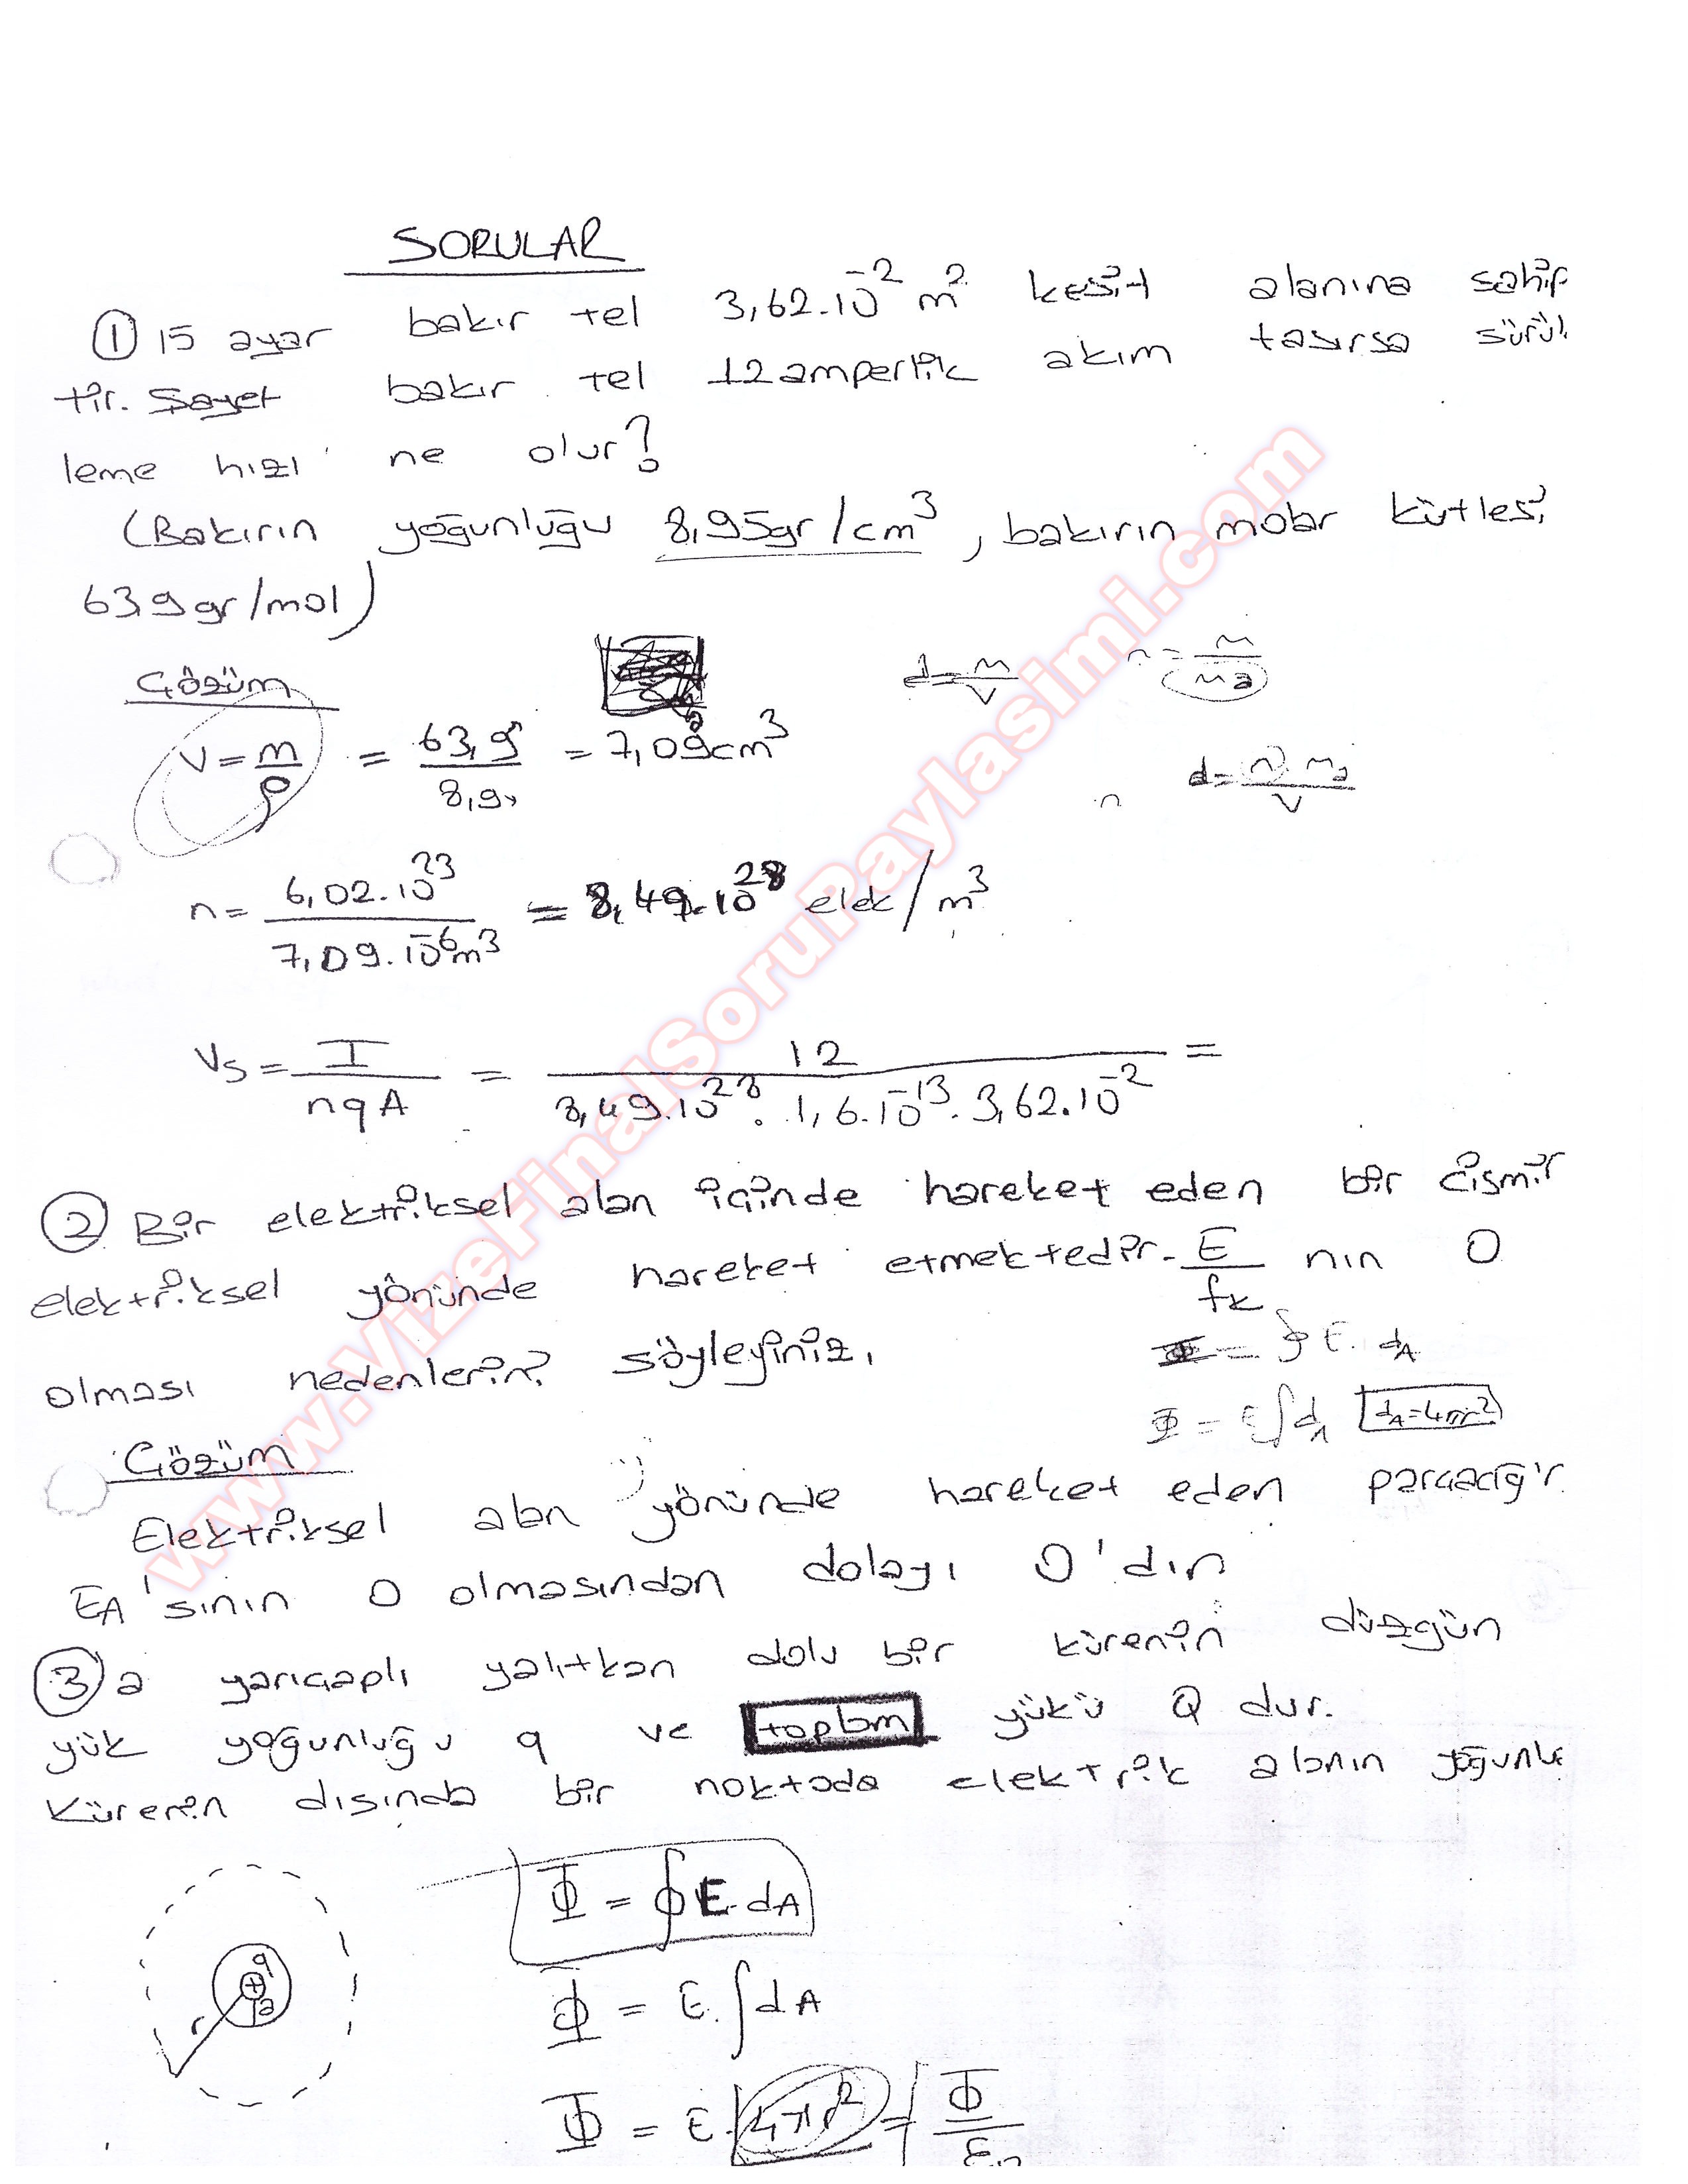 SORULAR
① 15 ayar bakır tel 3,62.10⁻² m² kesit alanına sahip
tir. Şayet bakır tel 12 amperlik akım tasırsa sürük
leme hızı ne olur?
(Bakırın yoğunluğu 8,95gr/cm³, bakırın molar kütlesi
63,9 gr/mol)
Çözüm
d = m/V n = m/ma
V = m/ρ = 63,9/8,9 = 7,09cm³
d = n.ma/V
n
n = 6,02.10²³/7,09.10⁻⁶m³ = 8,49.10²⁸ elek/m³
Vs = I/nqA = 12/8,49.10²⁸.1,6.10⁻¹³.3,62.10⁻² =
② Bir elektriksel alan içinde hareket eden bir cismir
elektriksel yönünde hareket etmektedir. E/fk nın 0
olması nedenlerini söyleyiniz.
Φ = ∮E.dA
Φ = E∫dA dA=4πr²
Çözüm
Elektriksel alan yönünde hareket eden parçacığır
EA'sının 0 olmasından dolayı 0'dın
③ a yarıçaplı yalıtkan dolu bir kürenin düzgün
yük yoğunluğu q ve toplam yükü Q dur.
Kürenin dısında bir noktada elektrik alanın yoğunlu
Φ = ∮E.dA
q
a
r
Φ = E.∫dA
Φ = E.4πr² = Φ/ε₀
www.VizeFinalSoruPaylasimi.com